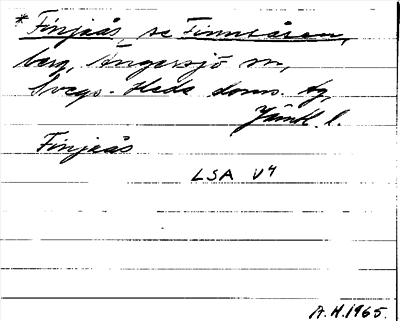 * Finjeås, se Finneåsen,
berg, Ängersjö sn,
Svegs - Heds doms. tg,
Jämtl. l.
Finjeås
LSA V4
A.H.1965.